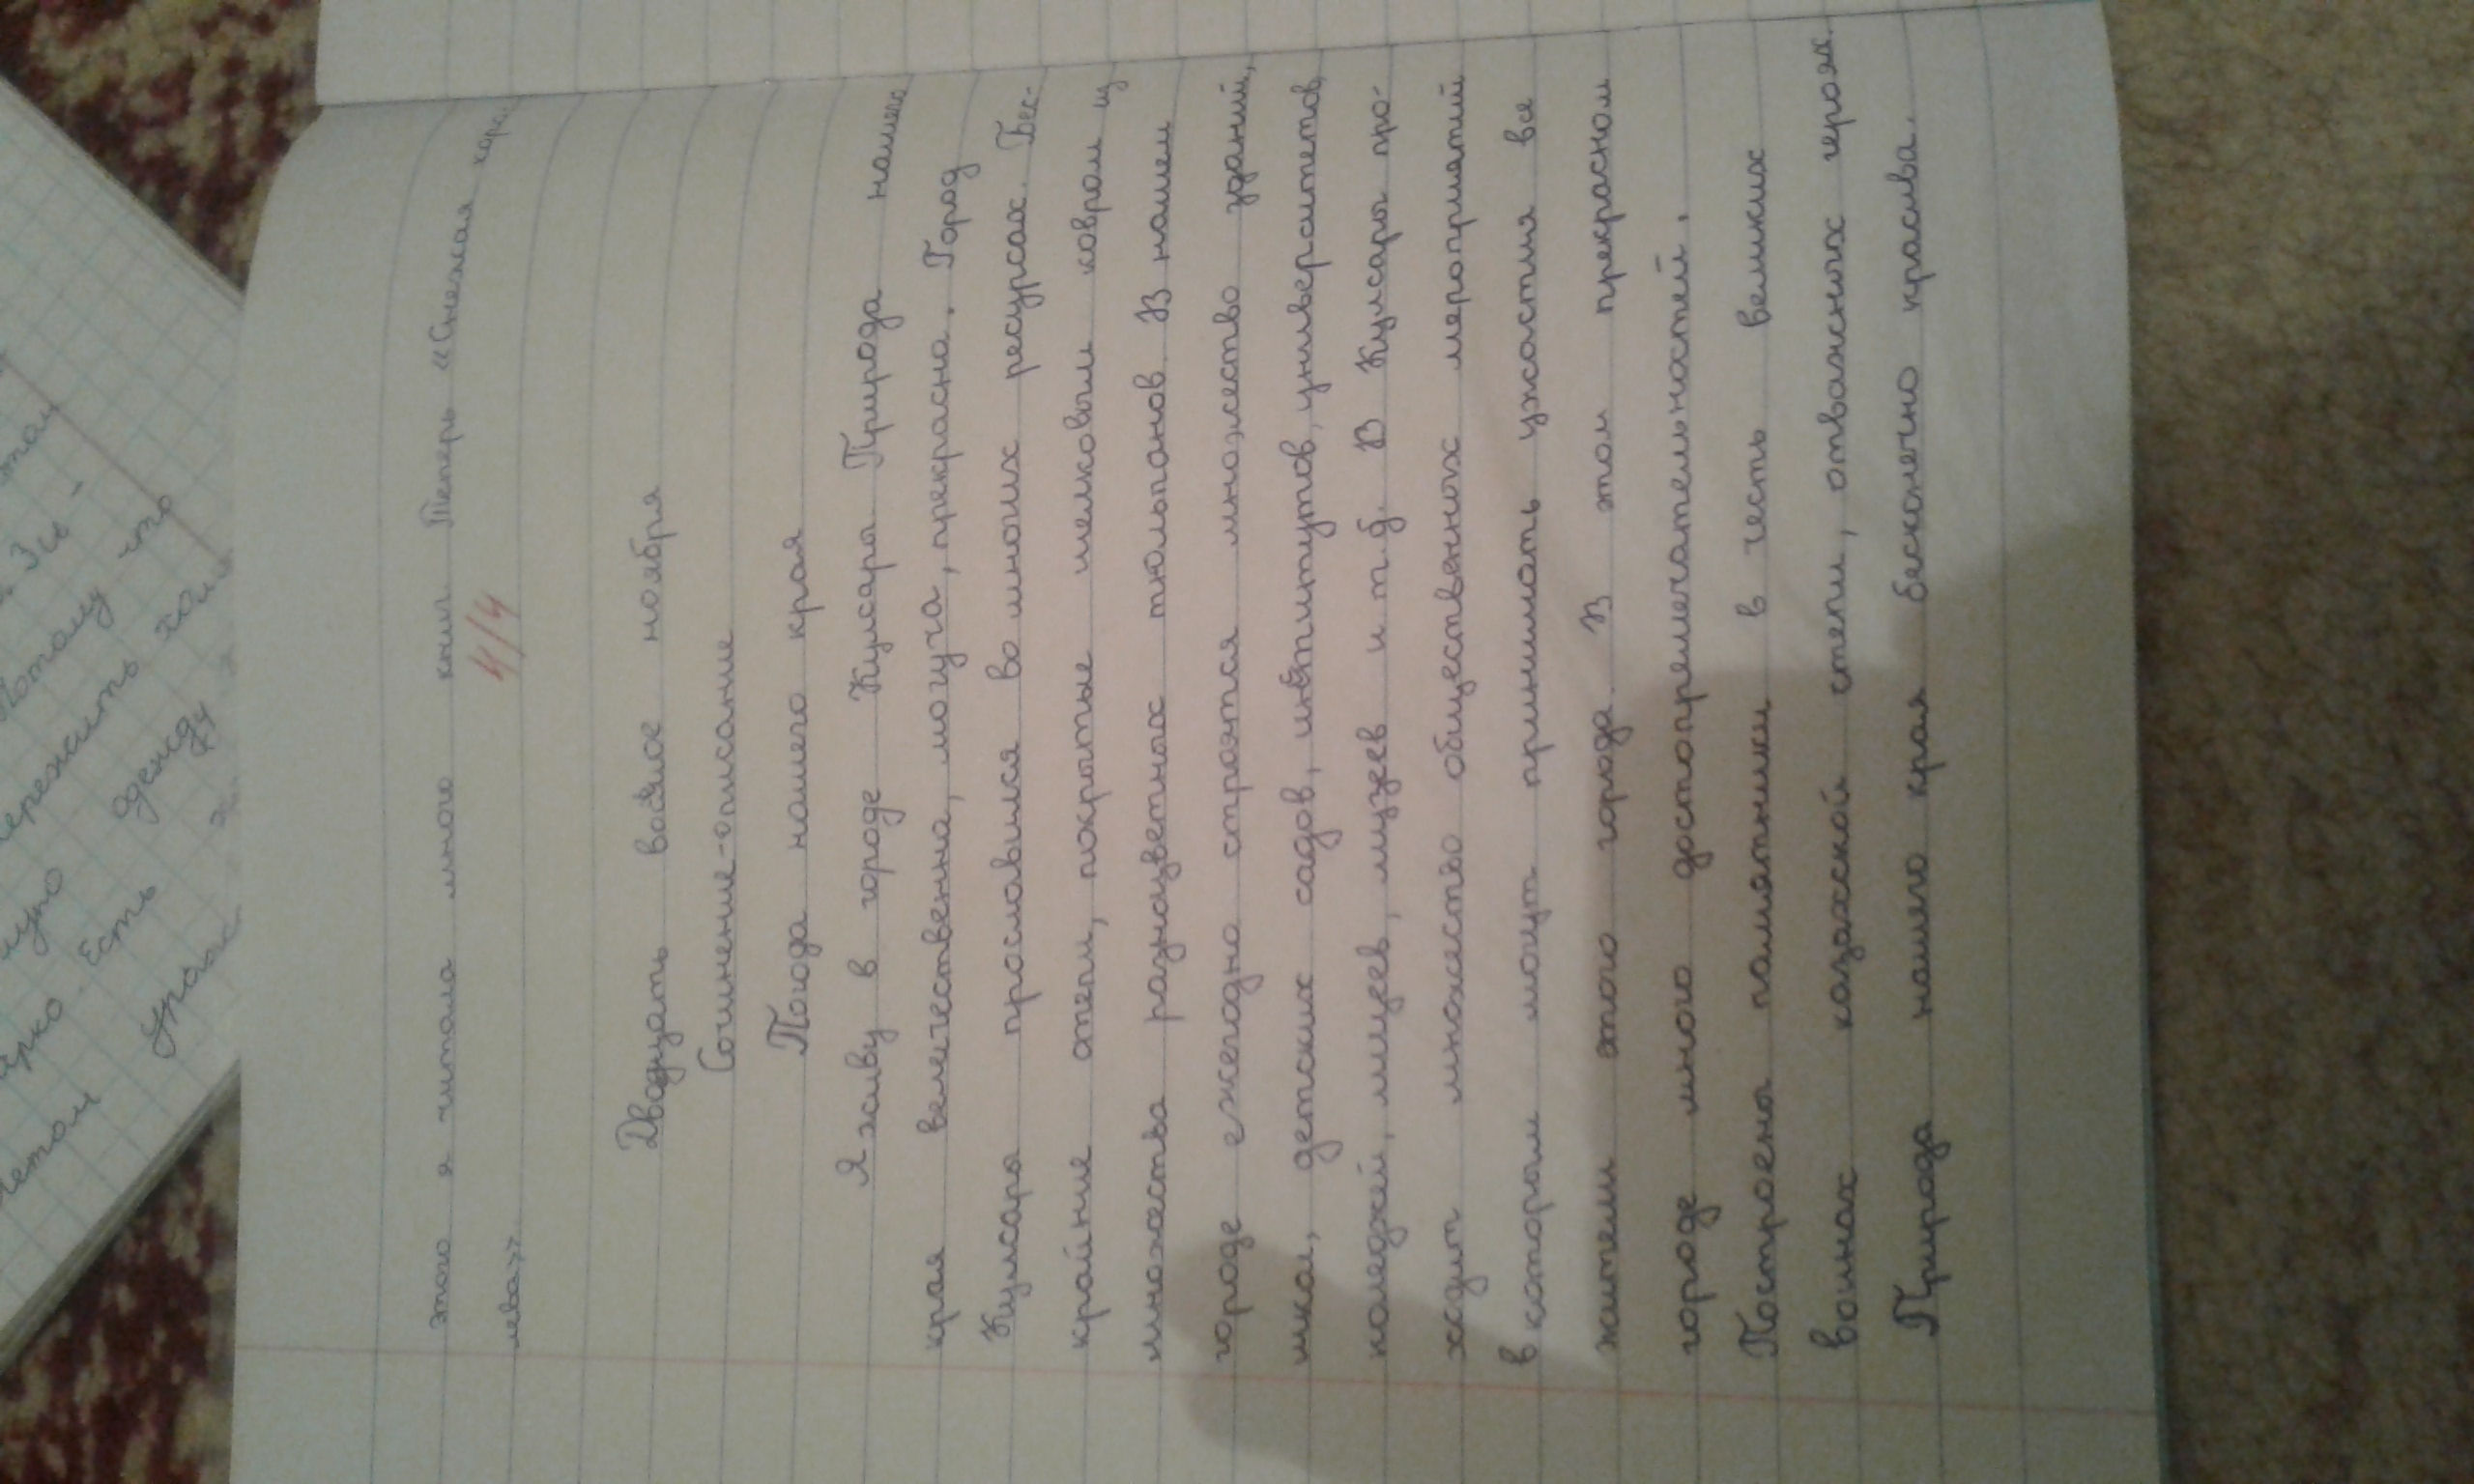 этого я читала много книг Теперь «Снежная коро-
лева»».
4/4
Двадцать восьмое ноября
Сочинение-описание
Погода нашего края
Я живу в городе Кулсары. Природа нашего
края величественна, могуча, прекрасна. Город
Кулсары прославился во многих ресурсах. Бес-
крайние степи, покрытые шелковым ковром из
множества разноцветных тюльпанов. В нашем
городе ежегодно строятся множество зданий,
школ, детских садов, институтов, университетов,
коледжей, лицеев, музеев и т.д. В Кулсары про-
ходит множество общественных мероприятий
в котором могут принимать ужастия все
жители этого города. В этом прекрасном
городе много достопремечательностей.
Построены памятники в честь великих
воинах казахской степи, отважных героях.
Природа нашего края бесконечно красива.
этом
Потому что
пережить
одежду
Есть
летом